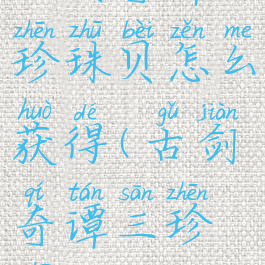 zhēn zhū bèi zěn me
珍珠贝怎么
huò dé gǔ jiàn
获得(古剑
qí tán sān zhēn
奇谭三珍